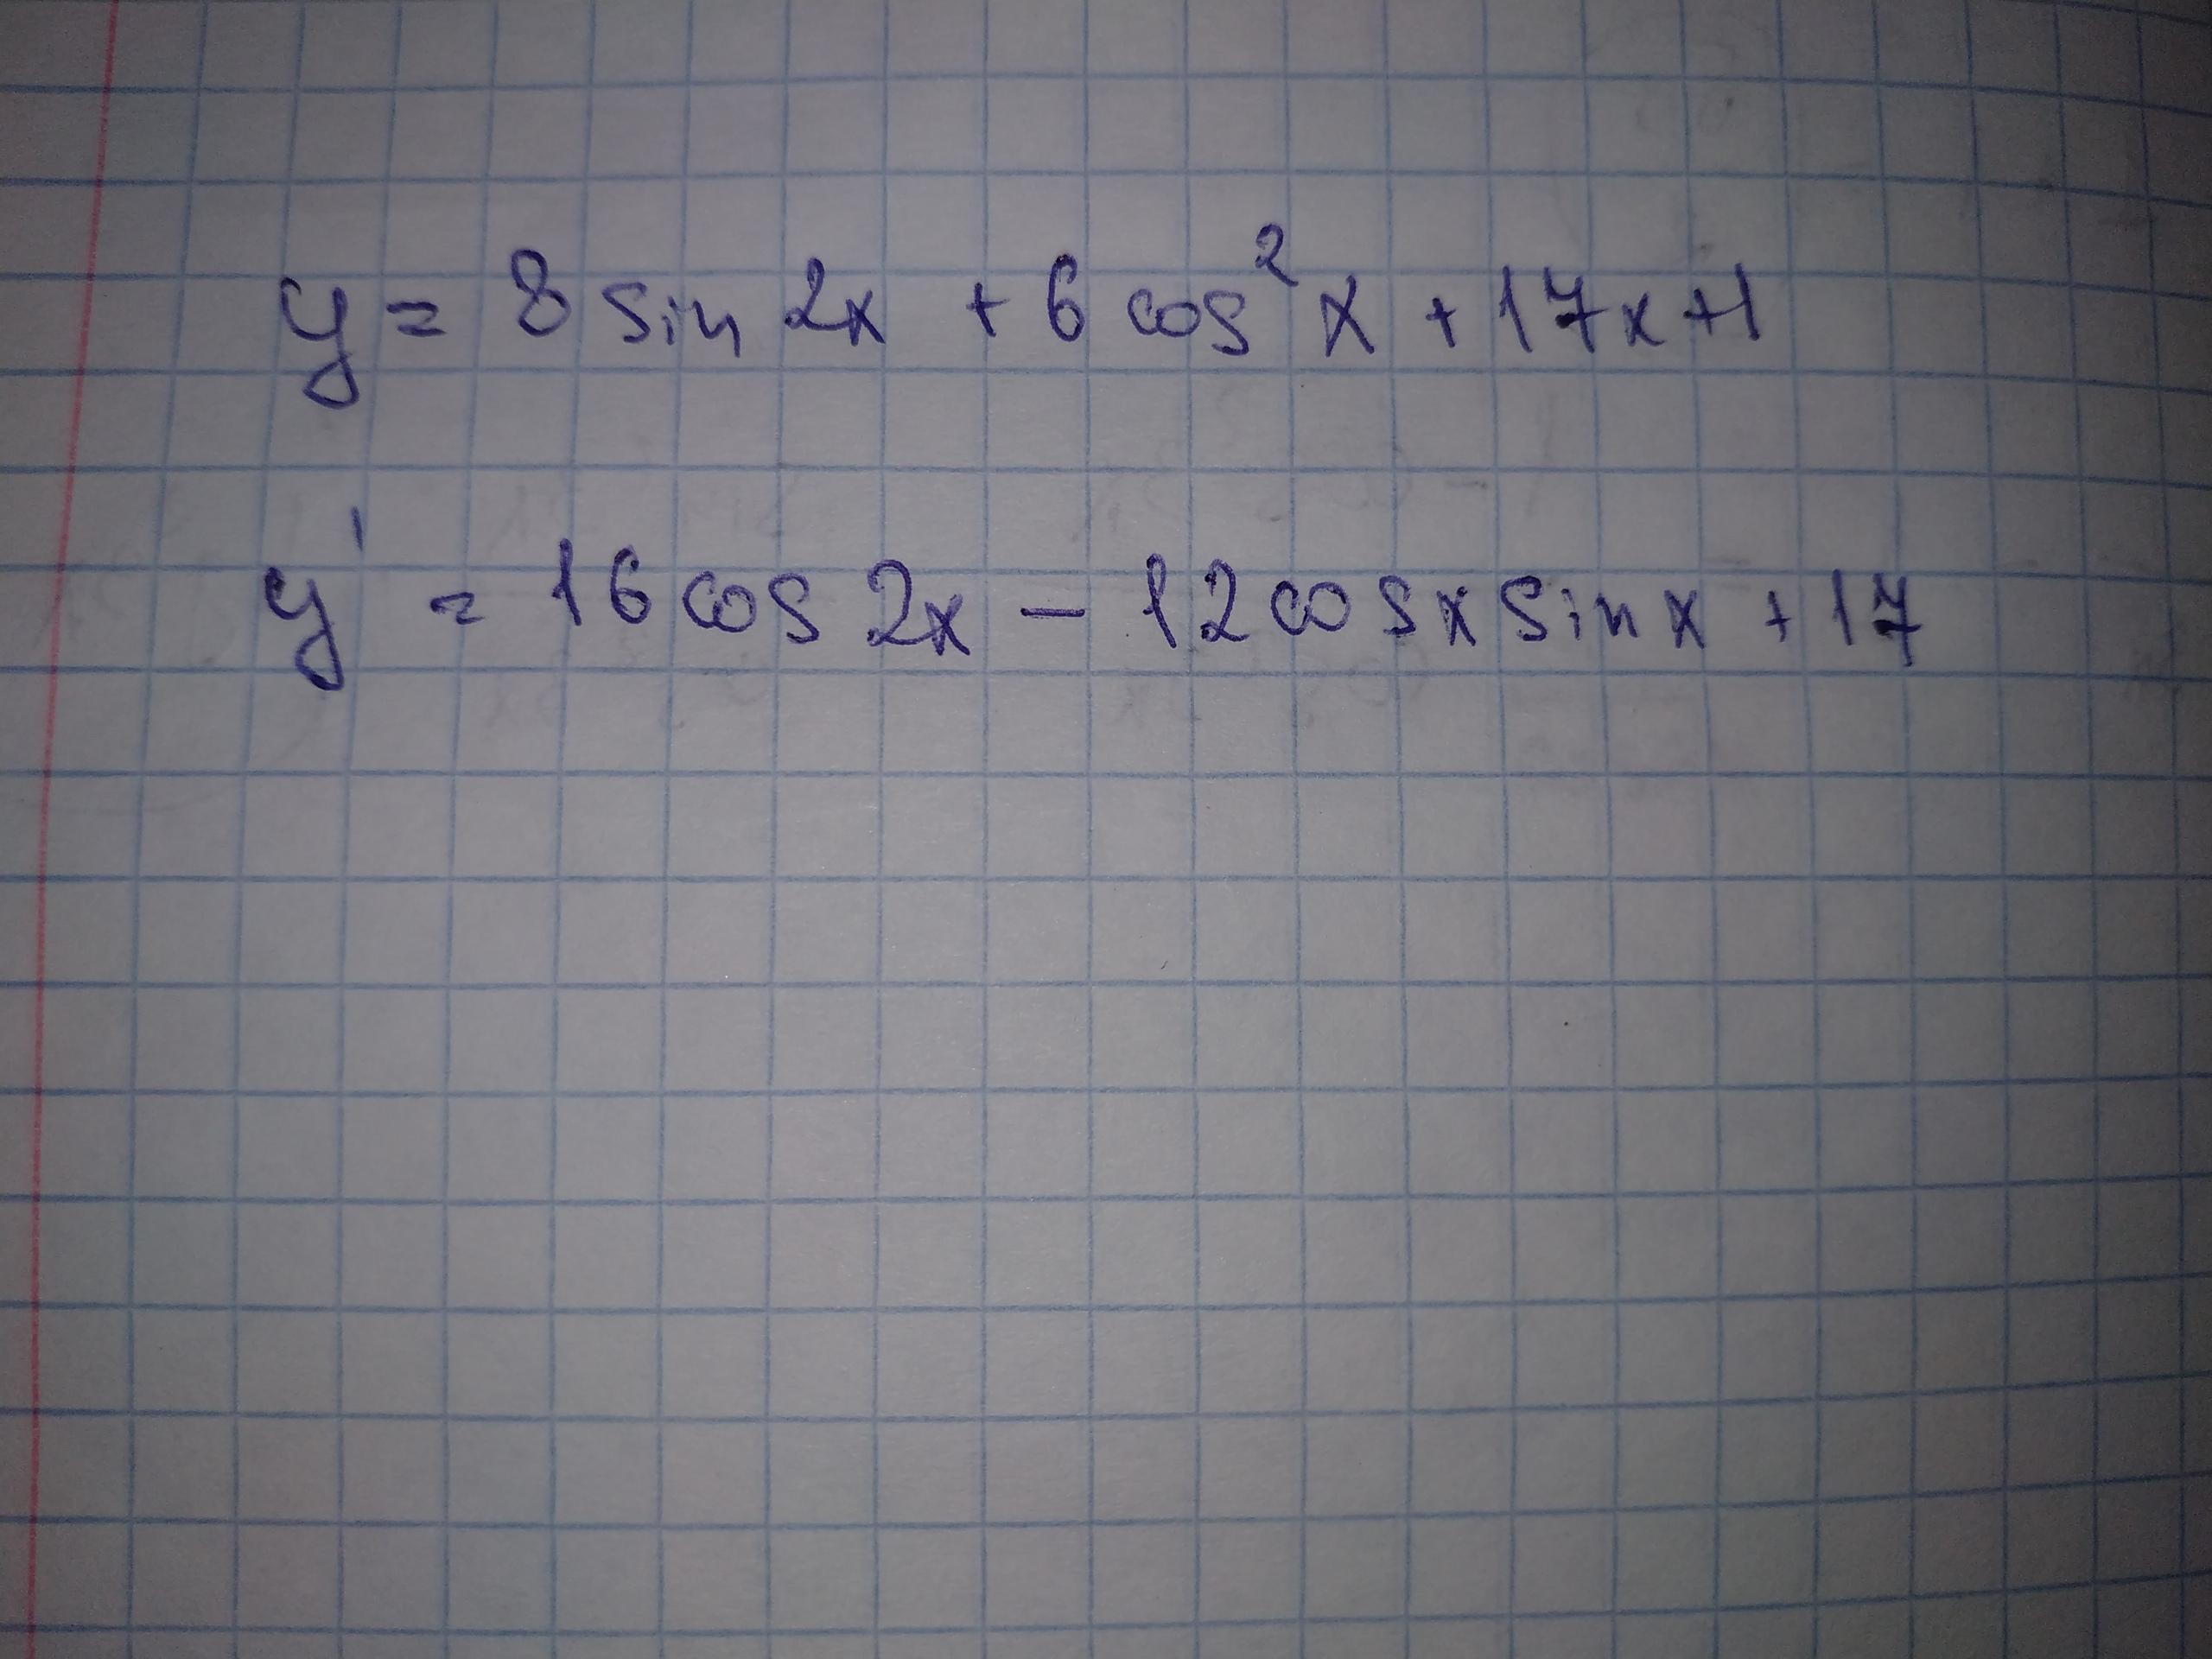 y = 8 sin 2x + 6 cos² x + 17x + 1
y' = 16 cos 2x - 12 cos x sin x + 17